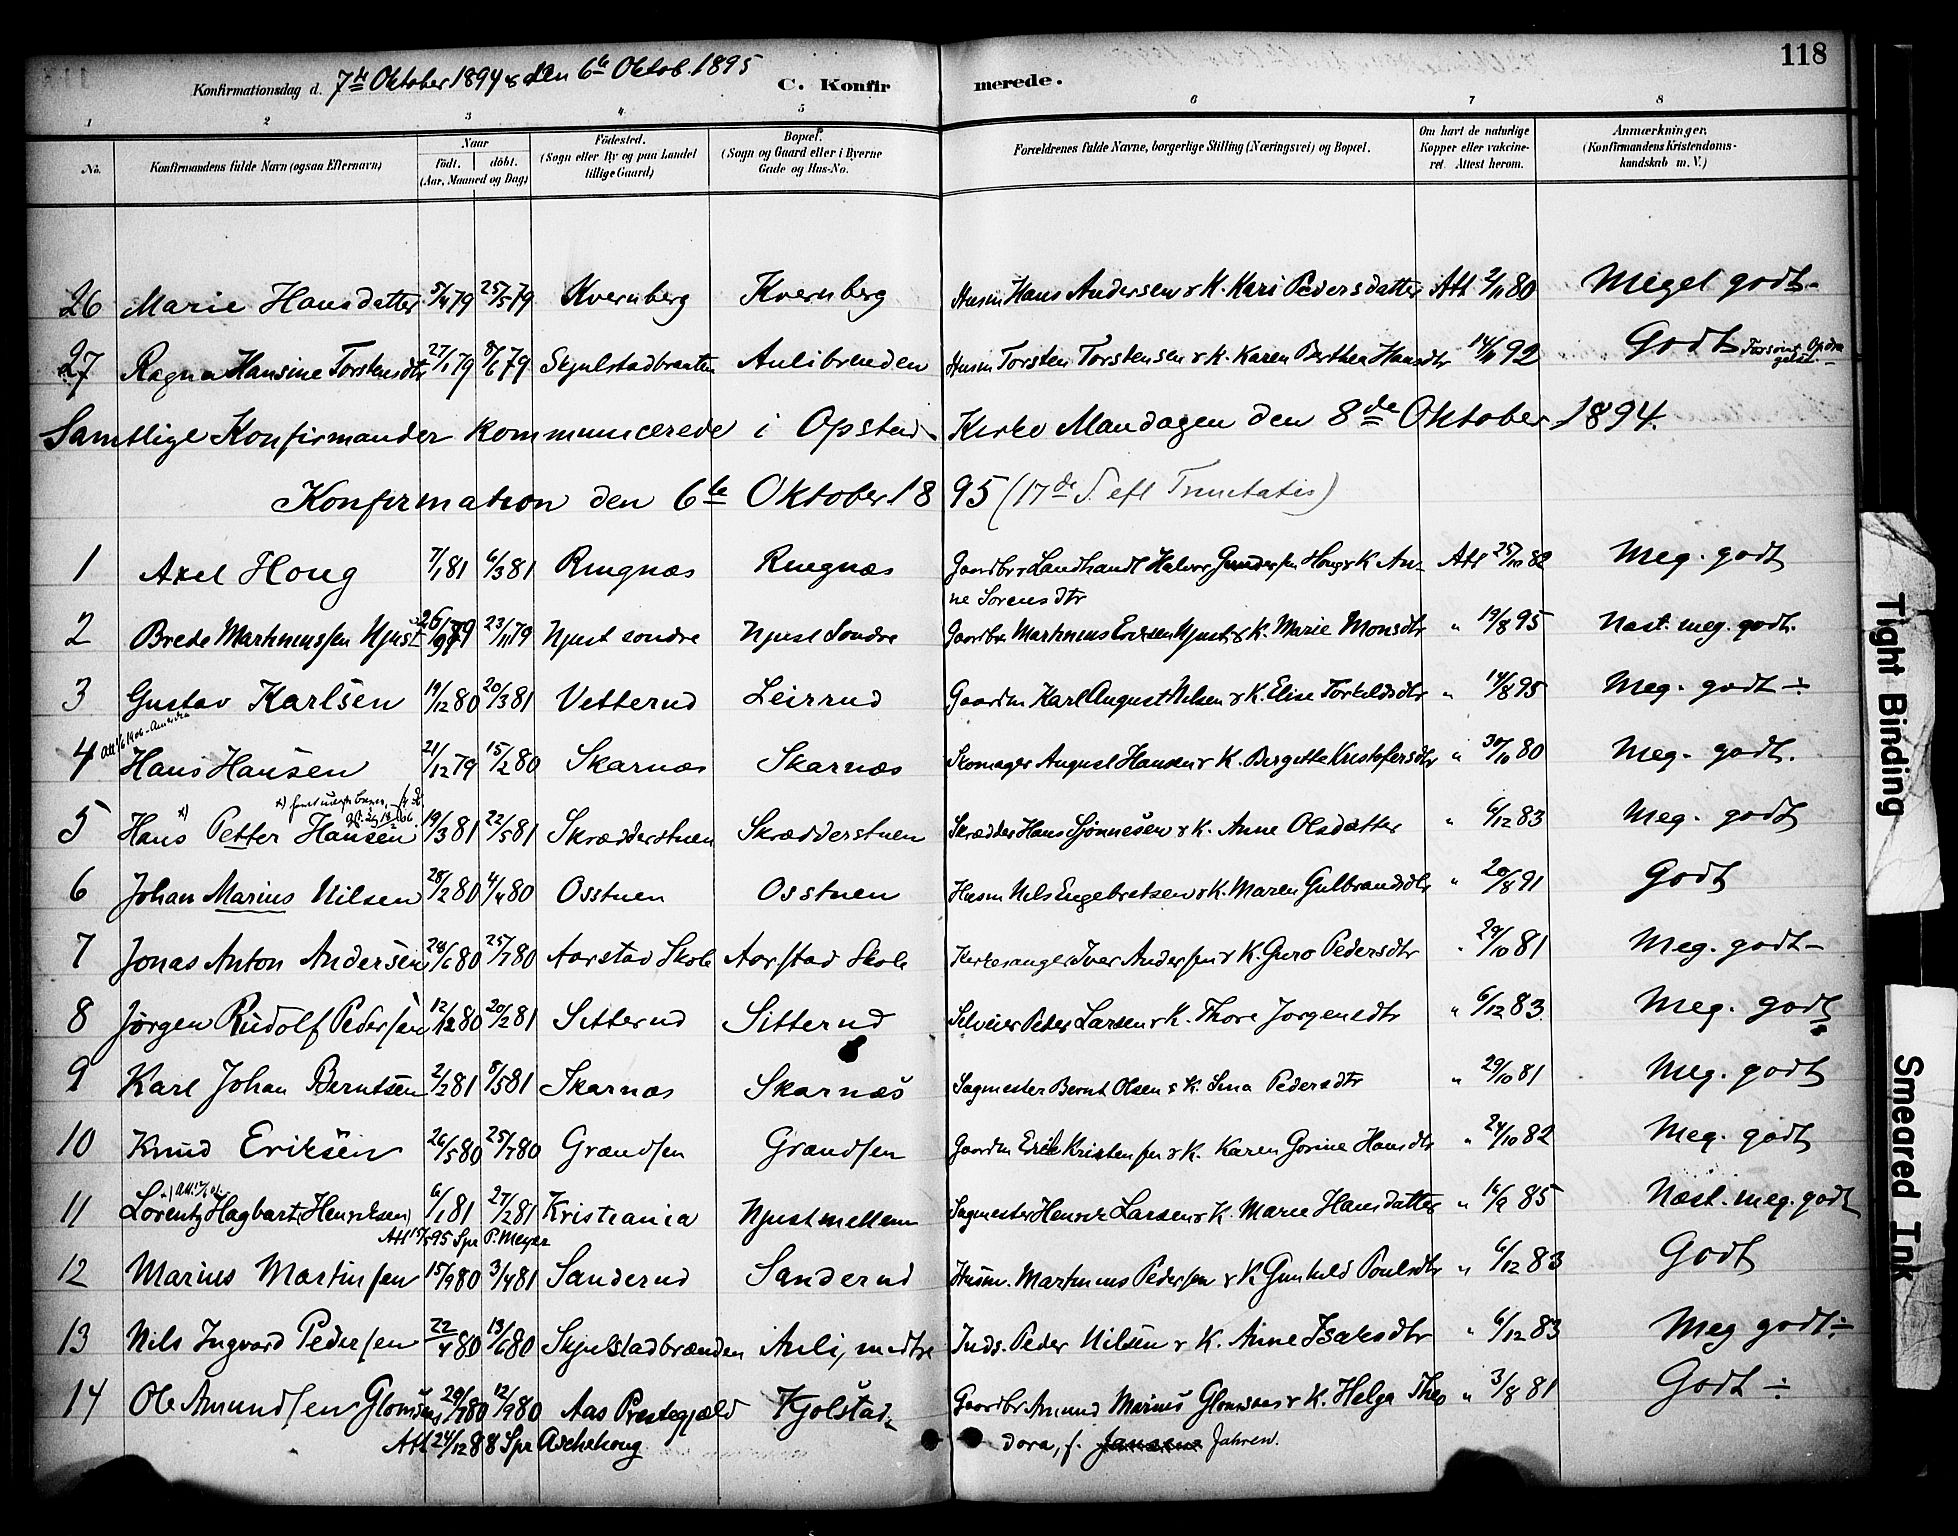 118
Konfirmationsdag d. 7de Oktober 1894 & den 6te Oktob. 1895 C. Konfirmerede.
1 2 3 4 5 6 7 8
No. Konfirmandens fulde Navn (ogsaa Efternavn) Naar födt. döbt. (Aar, Maaned og Dag) Födested. (Sogn eller By og paa Landet tillige Gaard) Bopæl. (Sogn og Gaard eller i Byerne Gade og Hus-No. Forældrenes fulde Navne, borgerlige Stilling (Næringsvei) og Bopæl. Om havt de naturlige Kopper eller vakcineret. Attest herom. Anmærkninger. (Konfirmandens Kristendomskundskab m. V.)
26 Marie Hansdatter 5/4 79 25/5 79 Kvernberg Kvernberg Husm Hans Andersen & K. Kari Pedersdatter Att 2/11 80 Meget godt
27 Ragna Hansine Torstensdtr 27/1 79 8/6 79 Skjulstadbraaten Aulibrenden Husm Torsten Torstensen & K. Karen Berthea Hansdtr 14/11 92 Godt
Samtlige Konfirmander kommunicerede i Opstad Kirke Mandagen den 8de Oktober 1894.
Konfirmation den 6te Oktober 1895 (17de S. eft Trinitatis)
1 Axel Houg 7/1 81 6/3 81 Ringnæs Ringnæs Gaardbr & Landhandl Halvor Gundersen Houg & K An-
ne Sorensdtr Att 25/10 82 Meg. godt
2 Brede Martinussen Njust 26/9 79 23/11 79 Njust sondre Njust Sondre Gaardbr. Martinus Eriksen Njust & K. Marie Monsdtr " 19/8 95 Næst. meg. godt.
3 Gustav Karlsen 19/12 80 20/3 81 Vetterud Leirrud Gaardm Karl August Nilsen & K. Elise Torkeldsdtr " 14/8 95 Meg. godt ÷
Att 1/6 1906 - Amerika
4 Hans Hansen 21/12 79 15/2 80 Skarnæs Skarnæs Skomager August Hansen & K. Bergitte Kristofersdtr " 30/10 80 Meg. godt.
5 Hans x) Petter Hansen 19/3 81 22/5 81 Skrædderstuen Skrædderstuen Skrædder Hans Gjønnesen & K. Anne Olsdatter " 6/12 83 Meg. godt
6 Johan Marius Nilsen 28/2 80 4/4 80 Osstuen Osstuen Husm Nils Engebretsen & K. Maren Gulbrandsdtr " 20/8 91 Godt
7 Jonas Anton Andersen 24/6 80 25/7 80 Aarstad Skole Aarstad Skole Kirkesanger Iver Andersen & K. Guro Pedersdtr " 29/10 81 Meg. godt
8 Jørgen Rudolf Pedersen 12/12 80 20/2 81 Sitterud Sitterud Selveier Peder Larsen & K. Thore Jorgensdtr " 6/12 83 Meg. godt
9 Karl Johan Berntsen 2/2 81 8/5 81 Skarnæs Skarnæs Sagmester Bernt Olsen & K. Sina Pedersdtr " 29/10 81 Meg. godt
10 Knud Eriksen 26/5 80 25/7 80 Grandsen Grandsen Gaardm Erik Kristensen & K. Karen Gorine Hansdtr " 24/10 82 Meg. godt
11 Lorentz Hagbart (Henriksen) 6/1 81 27/2 81 Kristiania Njust mellem Sagmester Henrik Larsen & K. Marie Hansdatter " 16/9 85 Næst. meg. godt
Att 17/5 95 Spr P. Meyer
12 Marius Martinsen 15/9 80 3/4 81 Sanderud Sanderud Husm. Martinus Pedersen & K Gunhild Poulsdtr " 6/12 83 Godt
13 Nils Ingvard Pedersen 22/4 80 13/6 80 Skjulstadbrænden Auli, nedtre Inds. Peder Nilsen & K. Anne Isaksdtr " 6/12 83 Meg godt ÷
14 Ole Amundsen Glomsaas 20/7 80 12/9 80 Aas Prestegjæld Kjolstad Gaardbr Amund Marius Glomsaas & K. Helga Theo " 3/8 81 Godt ÷
Att 24/12 88 Spr Aschehoug dora, f. Jahren.
Tight Binding
Smeared Ink